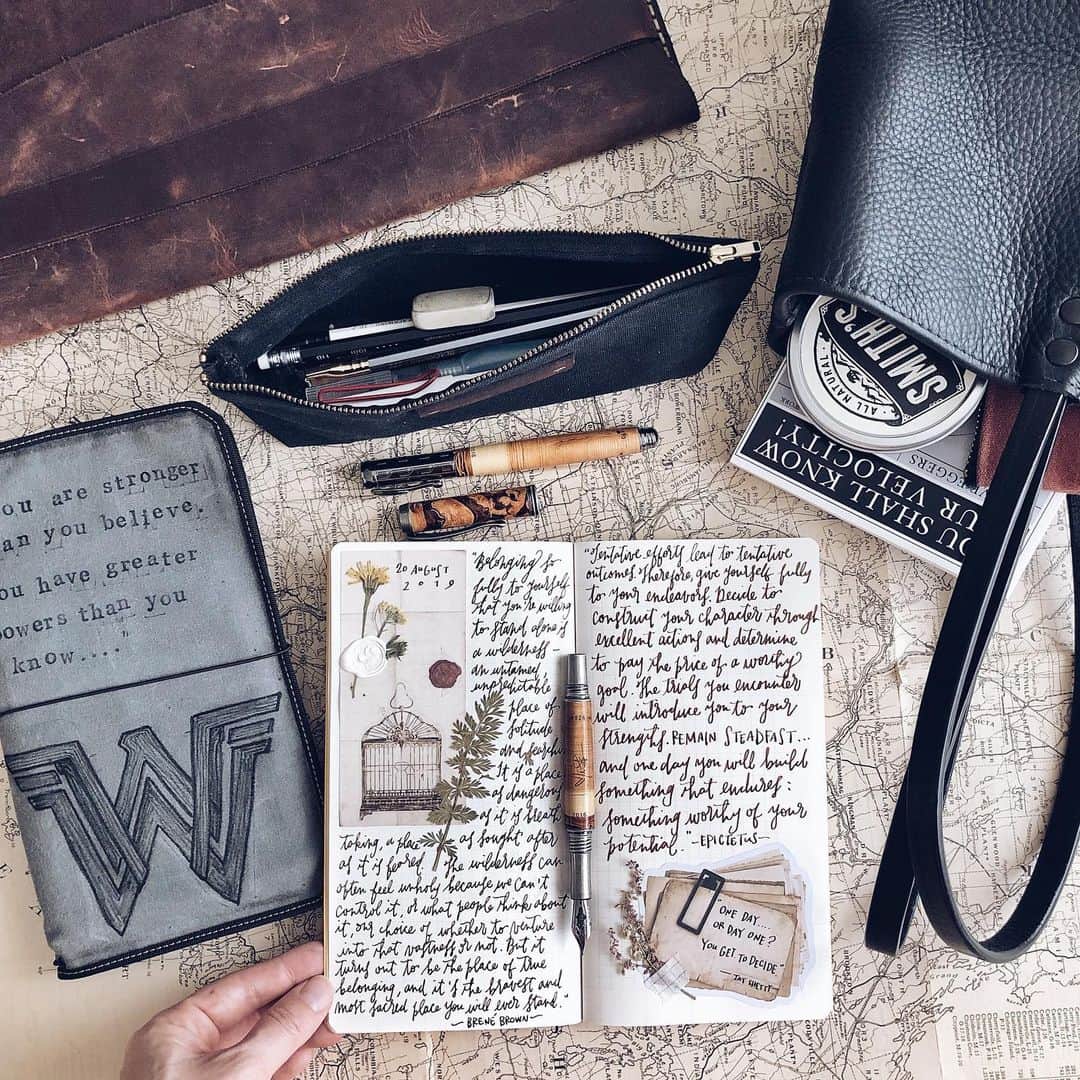 SMITH'S
ALL NATURAL
YOU SHALL KNOW
OUR VELOCITY!
EGGERS
ou are stronger
an you believe.
ou have greater
owers than you
know...."
W
20 AUGUST
2019
"Belonging so
fully to yourself
that you're willing
to stand alone is
a wilderness –
an untamed,
unpredictable
place of
solitude
and searching.
It is a place
as dangerous
as it is breath
taking, a place as sought after
as it is feared. The wilderness can
often feel unholy because we can't
control it, or what people think about
it, our choice of whether to venture
into that vastness or not. But it
turns out to be the place of true
belonging, and it's the bravest and
most sacred place you will ever stand."
– BRENÉ BROWN –
"Tentative efforts lead to tentative
outcomes. Therefore, give yourself fully
to your endeavors. Decide to
construct your character through
excellent actions and determine
to pay the price of a worthy
goal. The trials you encounter
will introduce you to your
strengths. REMAIN STEADFAST...
and one day you will build
something that endures:
something worthy of your
potential." –EPICTETUS–
"ONE DAY....
OR DAY ONE?
YOU GET TO DECIDE"
–JAY SHETTY–